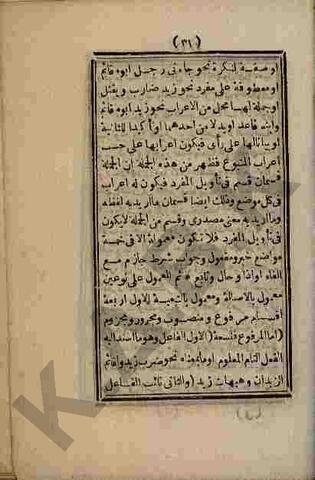 (٣١)
او صفة لنكرة نحو جاءنى رجل ابوه قائم
او معطوفة على مفرد نحو زيد ضارب ويقتل
او جملة لها محل من الاعراب نحو زيد ابوه قائم
وابنه قاعد او بدلا من احدهما او تأكيدا للثانية
او بيانا لها على رأى فيكون اعرابها على حسب
اعراب المتبوع فظهر من هذه الجملة ان الجملة
قسمان قسم فى تأويل المفرد فيكون له اعراب
فى كل موضع وذلك ايضا قسمان ما اريد به لفظه
وما اريد به معنى مصدرى وقسم من الجملة لا يكون
فى تأويل المفرد فلا تكون معمولة الا فى خمسة
مواضع خبر ومفعول وجواب شرط جازم مع
الفاء او اذا وحال وتابع ثم المعمول على نوعين
معمول بالاصالة ومعمول بالتبعية الاول اربعة
اقسام مرفوع ومنصوب ومجرور ومجزوم
(اما المرفوع فتسعة (الاول الفاعل وهو ما اسند اليه
الفعل التام المعلوم او ما بمعناه نحو ضرب زيد واقائم
الزيدان وهيهات زيد (والثانى نائب الفاعل